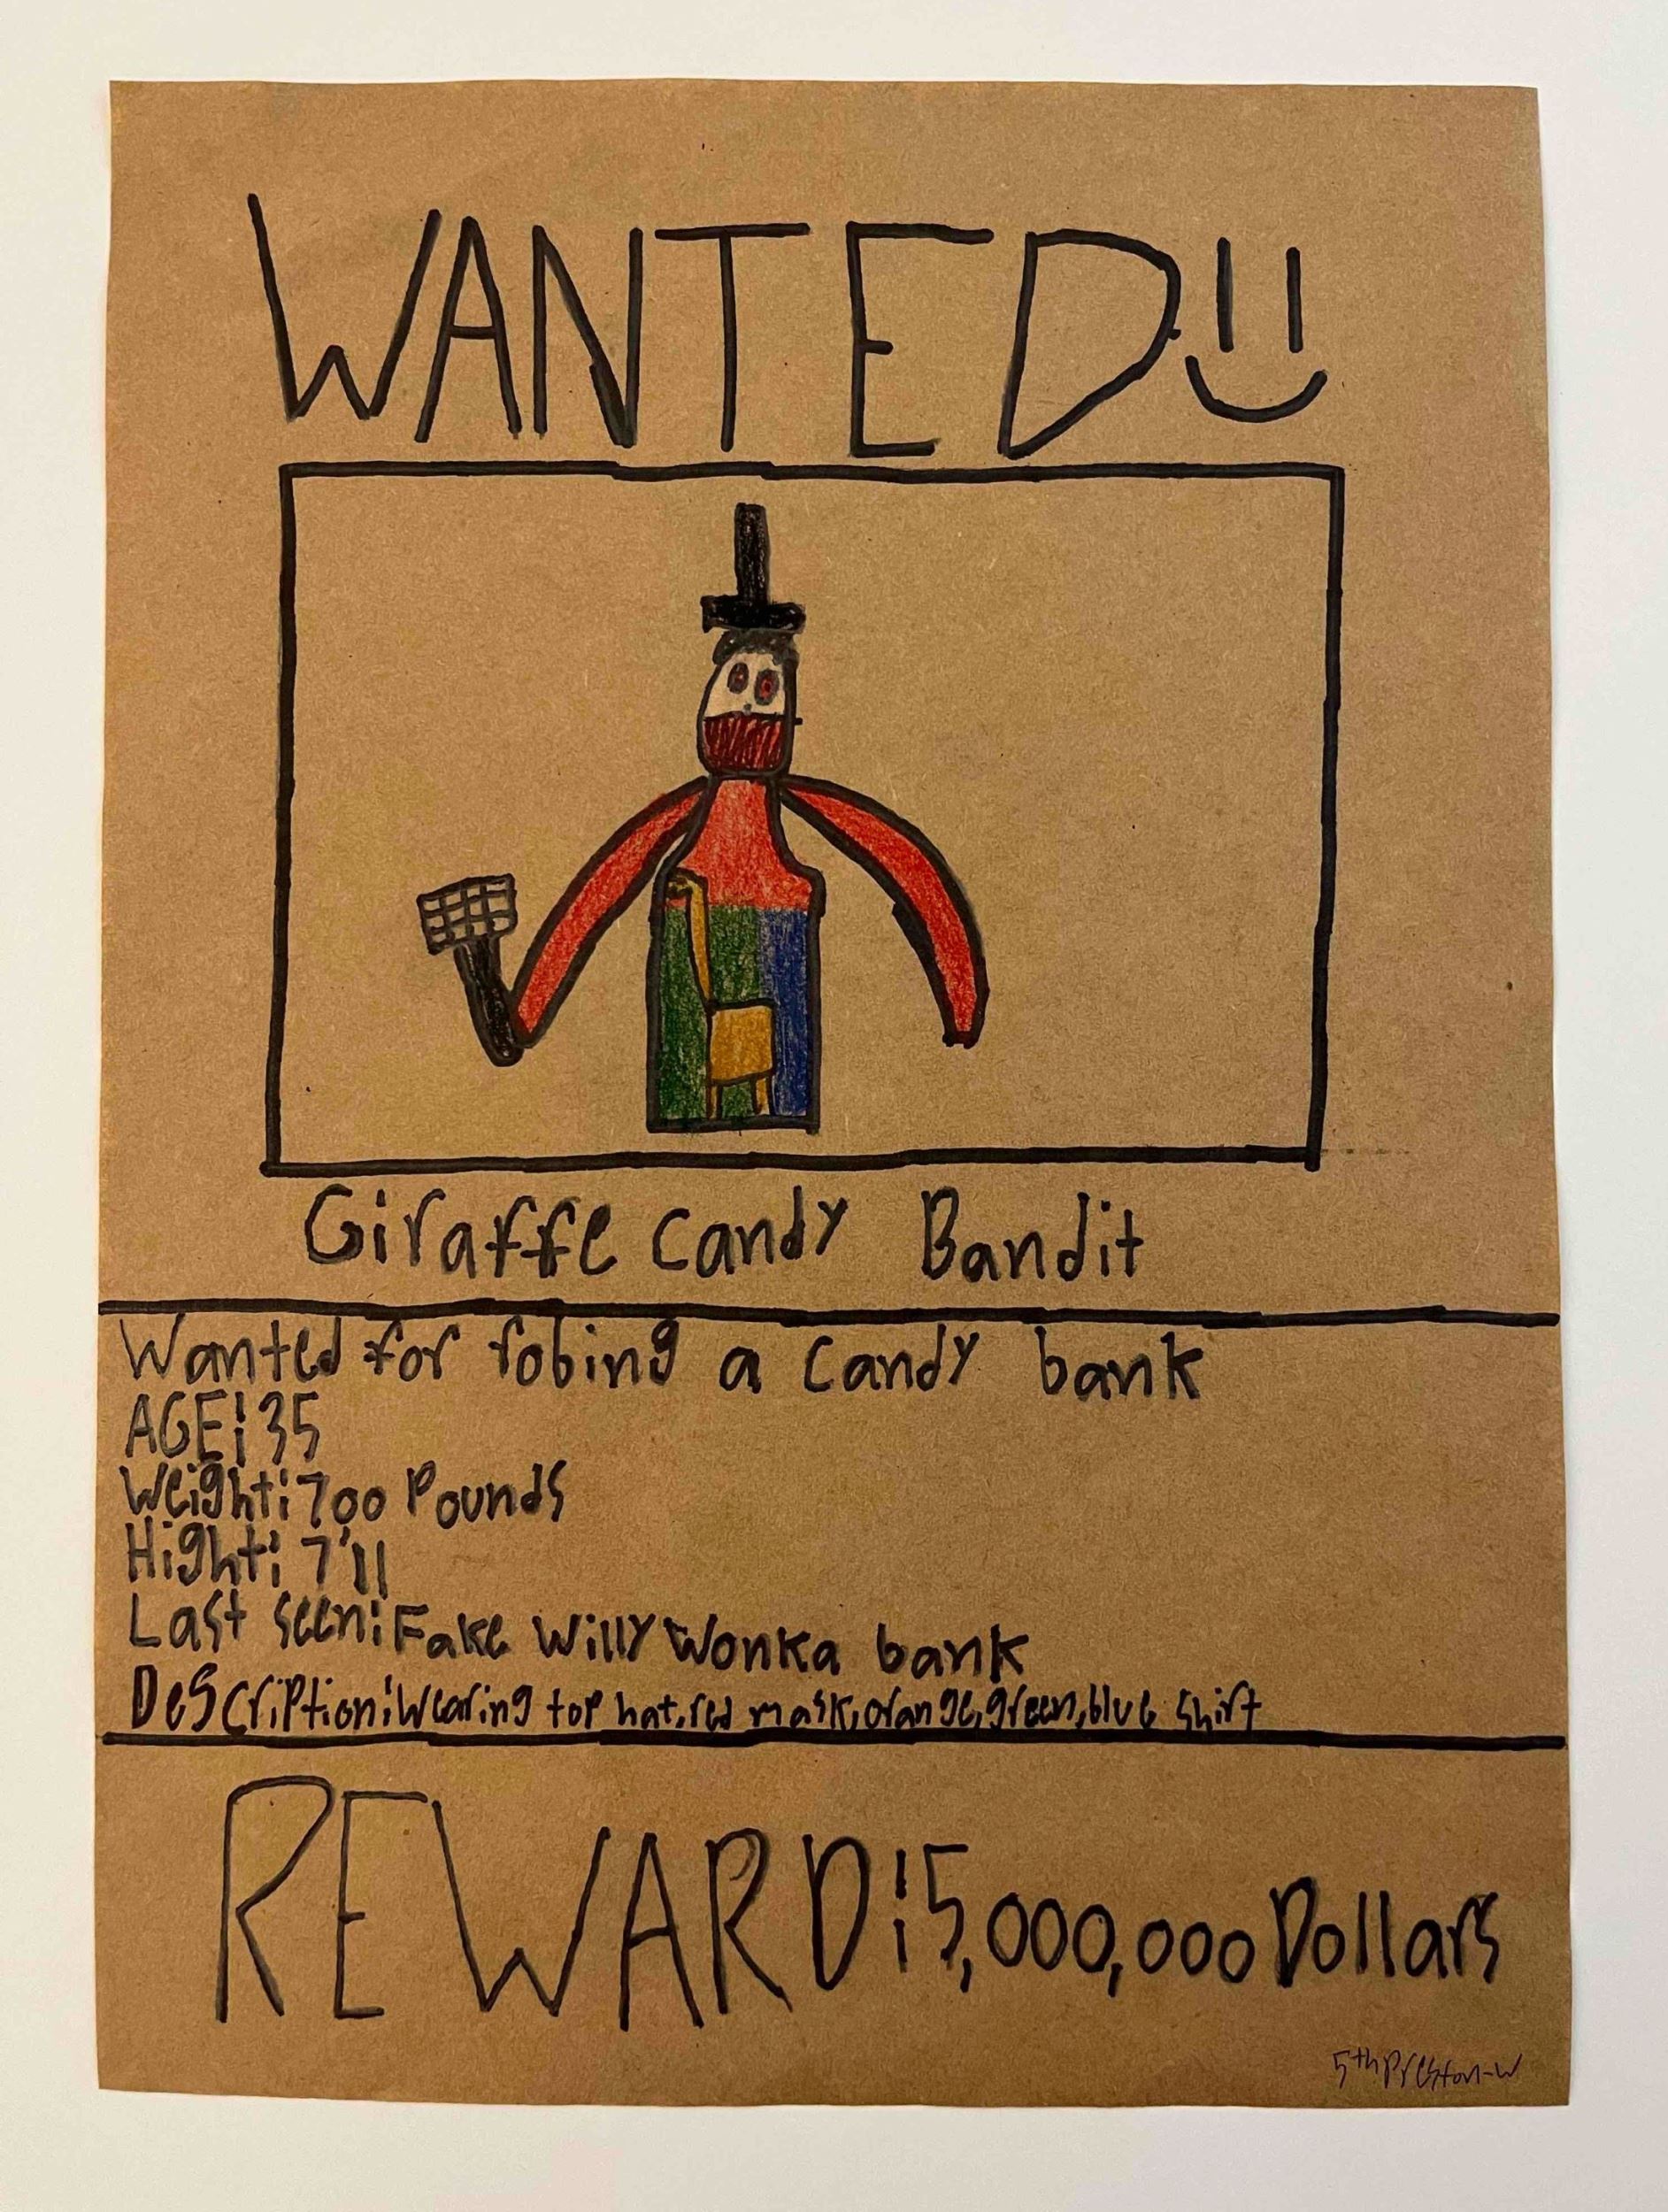 WANTED!!
Giraffe candy Bandit
Wanted for robing a candy bank
AGE: 35
Weight: 700 Pounds
Hight: 7'11
Last seen: Fake Willy Wonka bank
Description: Wearing top hat, red mask, orange, green, blue shirt
REWARD: 5,000,000 Dollars
5th Preston-W